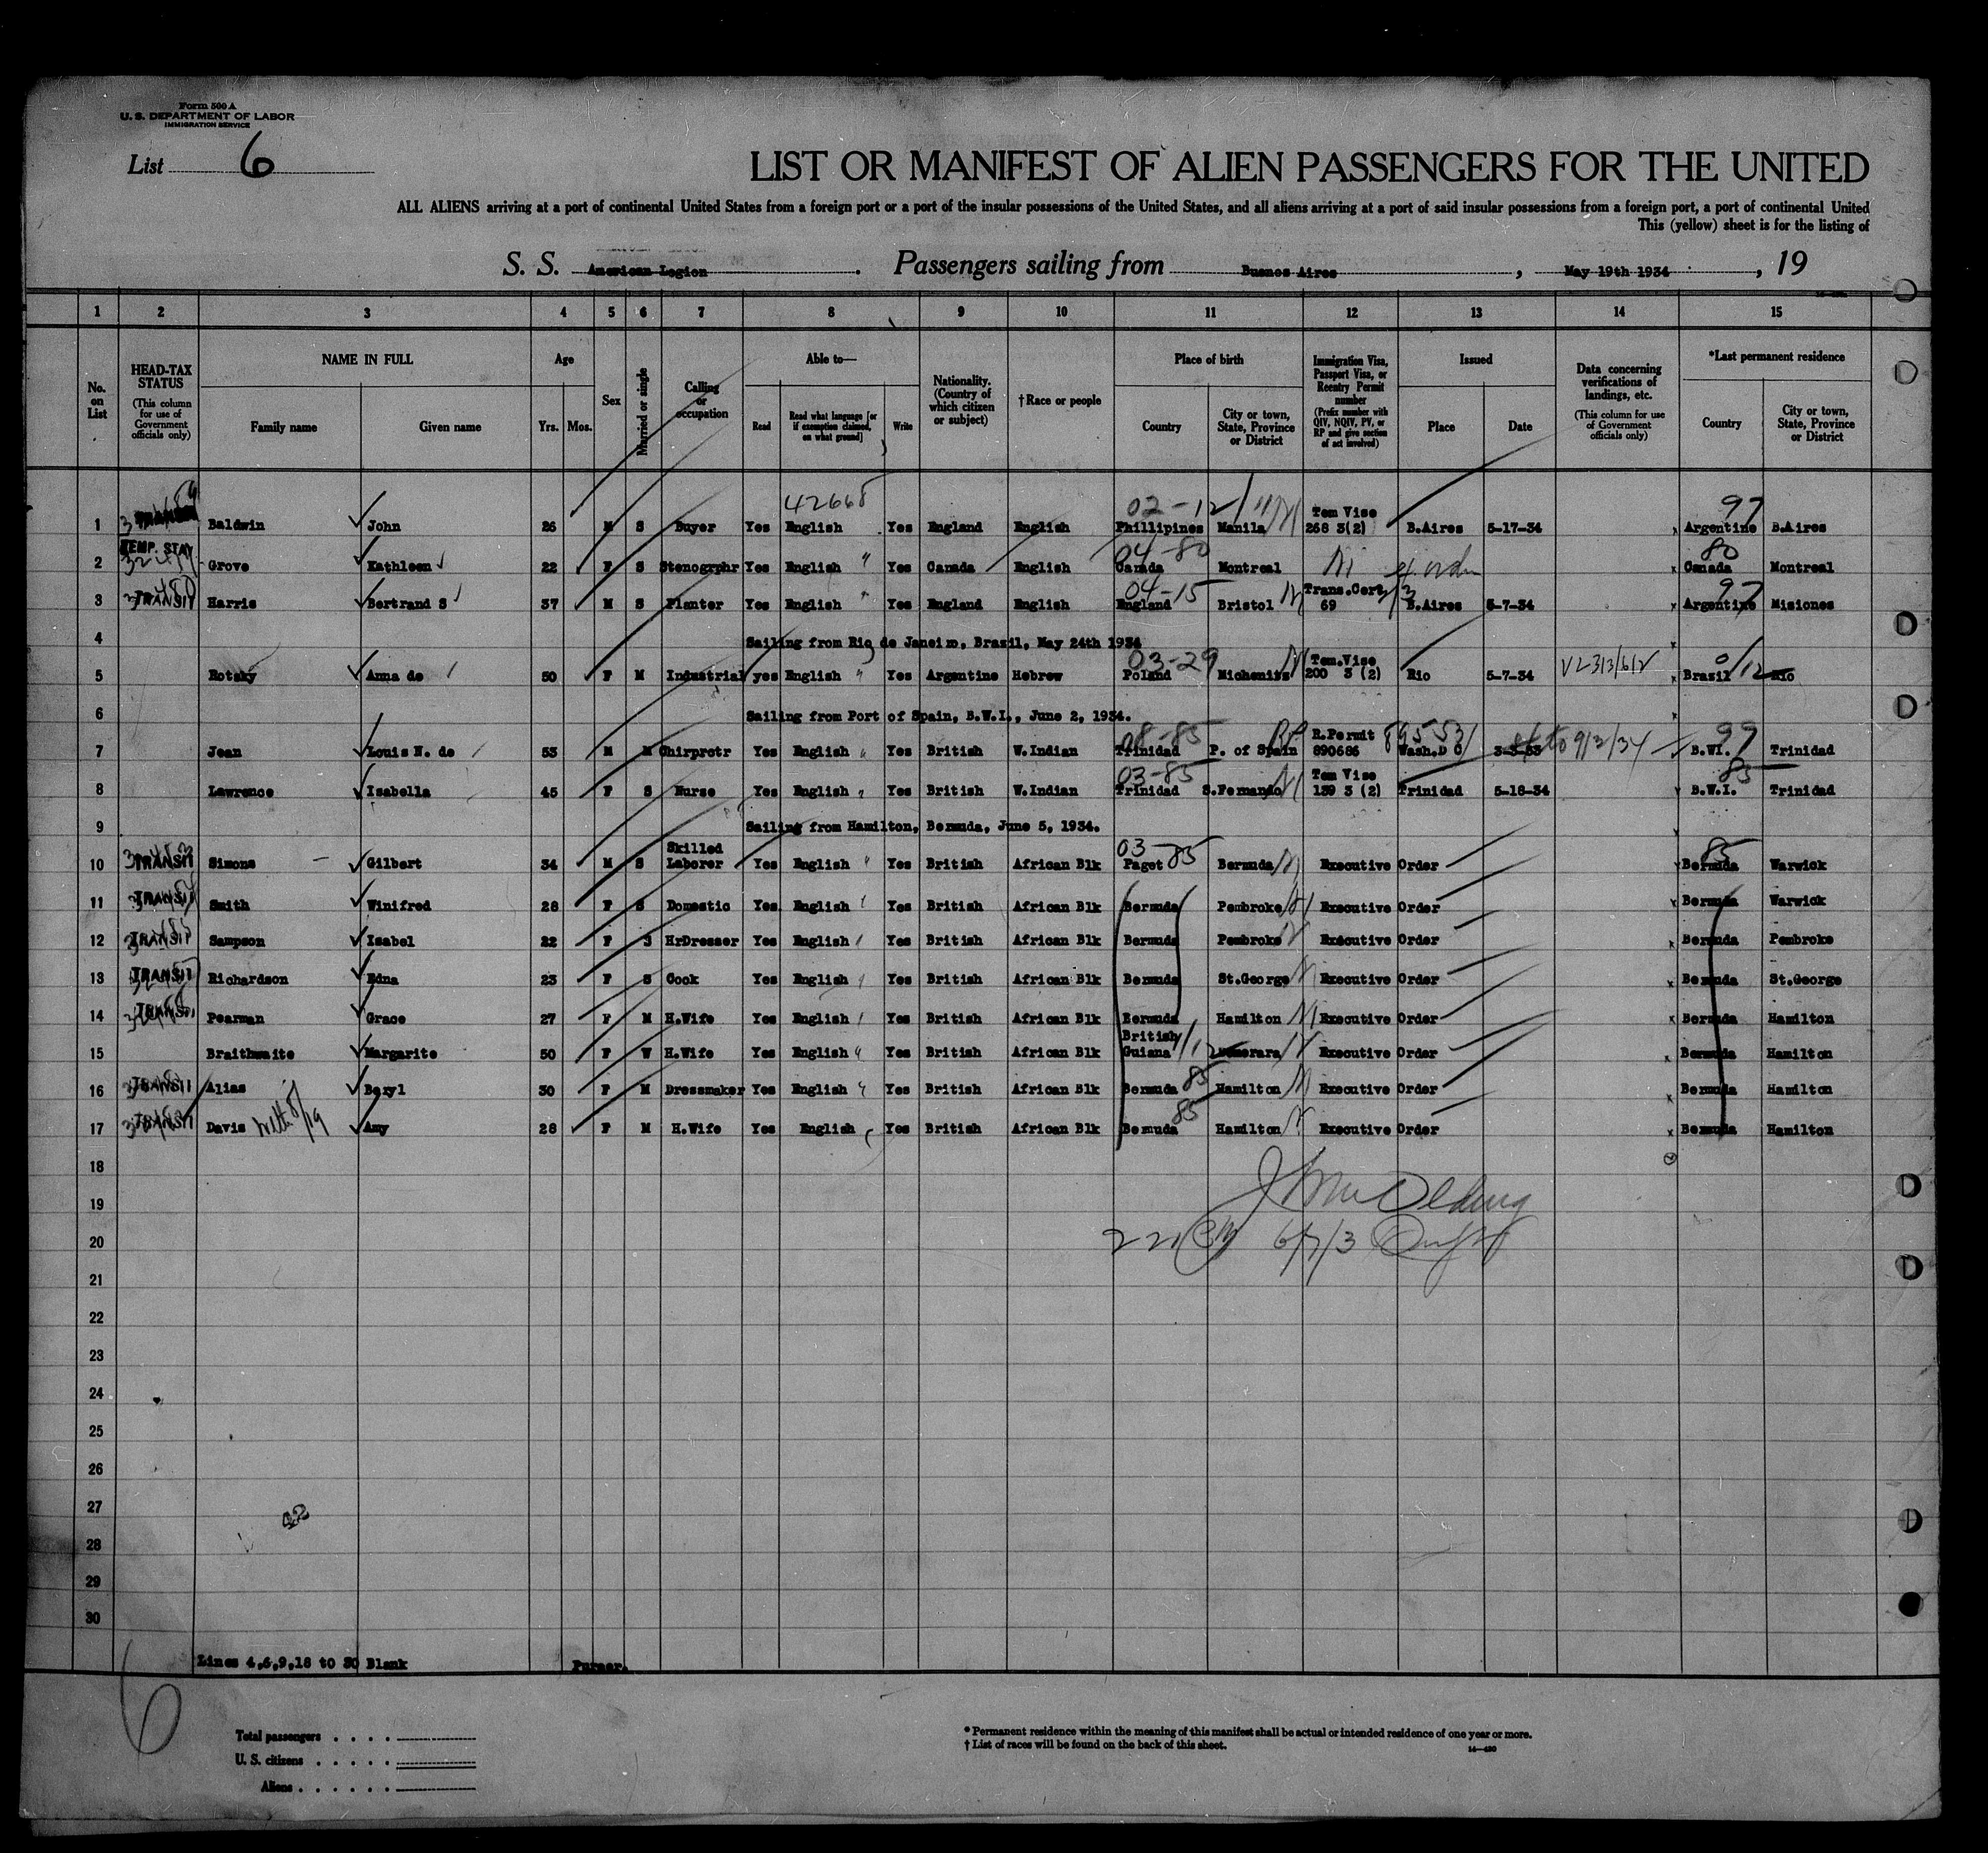 Form 500 A
U. S. DEPARTMENT OF LABOR
IMMIGRATION SERVICE
List 6
LIST OR MANIFEST OF ALIEN PASSENGERS FOR THE UNITED
ALL ALIENS arriving at a port of continental United States from a foreign port or a port of the insular possessions of the United States, and all aliens arriving at a port of said insular possessions from a foreign port, a port of continental United
This (yellow) sheet is for the listing of
S. S. American Legion. Passengers sailing from Buenos Aires, May 19th 1934, 19
1 2 3 4 5 6 7 8 9 10 11 12 13 14 15
No. on List
HEAD-TAX STATUS (This column for use of Government officials only)
NAME IN FULL Family name Given name
Age Yrs. Mos.
Sex
Married or single
Calling or occupation
Able to— Read Read what language [or if exemption claimed, on what ground] Write
Nationality. (Country of which citizen or subject)
†Race or people
Place of birth Country City or town, State, Province or District
Immigration Visa, Passport Visa, or Reentry Permit number (Prefix number with QIV, NQIV, PV, or RP and give section of act involved)
Issued Place Date
Data concerning verifications of landings, etc. (This column for use of Government officials only)
*Last permanent residence Country City or town, State, Province or District
42668 02-12 97
1 Baldwin John 26 M S Buyer Yes English Yes England English Phillipines Manila Tem Vise 268 3(2) B.Aires 5-17-34 Argentine B.Aires
04-80 80
2 TEMP. STAY Grove Kathleen 22 F S Stenogrphr Yes English " Yes Canada English Canada Montreal Canada Montreal
04-15 97
3 TRANSIT Harris Bertrand S 37 M S Planter Yes English " Yes England English England Bristol Trans.Cert. 69 B.Aires 5-7-34 Argentine Misiones
4 Sailing from Rio de Janeiro, Brazil, May 24th 1934
03-29
5 Rotsky Anna de 50 F M Industrial yes English " Yes Argentine Hebrew Poland Michenits Tem.Vise 200 3 (2) Rio 5-7-34 Brazil Rio
6 Sailing from Port of Spain, B.W.I., June 2, 1934.
08-85 99
7 Jean Louis N. de 53 M M Chirprotr Yes English " Yes British W.Indian Trinidad P. of Spain RP R.Permit 890686 Wash.D C 9/2/34 B.WI. Trinidad
03-85 85
8 Lawrence Isabella 45 F S Nurse Yes English " Yes British W.Indian Trinidad S.Fernando Tem Vise 139 3 (2) Trinidad 5-18-34 B.W.I. Trinidad
9 Sailing from Hamilton, Bermuda, June 5, 1934.
03-85 85
10 TRANSIT Simons Gilbert 34 M S Skilled Laborer Yes English " Yes British African Blk Paget Bermuda Executive Order Bermuda Warwick
11 TRANSIT Smith Winifred 28 F S Domestic Yes English Yes British African Blk Bermuda Pembroke Executive Order Bermuda Warwick
12 TRANSIT Sampson Isabel 22 F S HrDresser Yes English Yes British African Blk Bermuda Pembroke Executive Order Bermuda Pembroke
13 TRANSIT Richardson Edna 23 F S Cook Yes English Yes British African Blk Bermuda St.George Executive Order Bermuda St.George
14 TRANSIT Pearman Grace 27 F M H.Wife Yes English Yes British African Blk Bermuda Hamilton Executive Order Bermuda Hamilton
15 Braithwaite Margarite 50 F W H.Wife Yes English Yes British African Blk British Guiana Demerara Executive Order Bermuda Hamilton
16 TRANSIT Alias Beryl 30 F M Dressmaker Yes English Yes British African Blk Bermuda 85 Hamilton Executive Order Bermuda Hamilton
17 TRANSIT Davis Amy 28 F M H.Wife Yes English Yes British African Blk Bermuda 85 Hamilton Executive Order Bermuda Hamilton
18
19
20
21
22
23
24
25
26
27
42
28
29
30
Lines 4,6,9,18 to 30 Blank Purser.
6
Total passengers
U. S. citizens
Aliens
* Permanent residence within the meaning of this manifest shall be actual or intended residence of one year or more.
† List of races will be found on the back of this sheet.
14—430